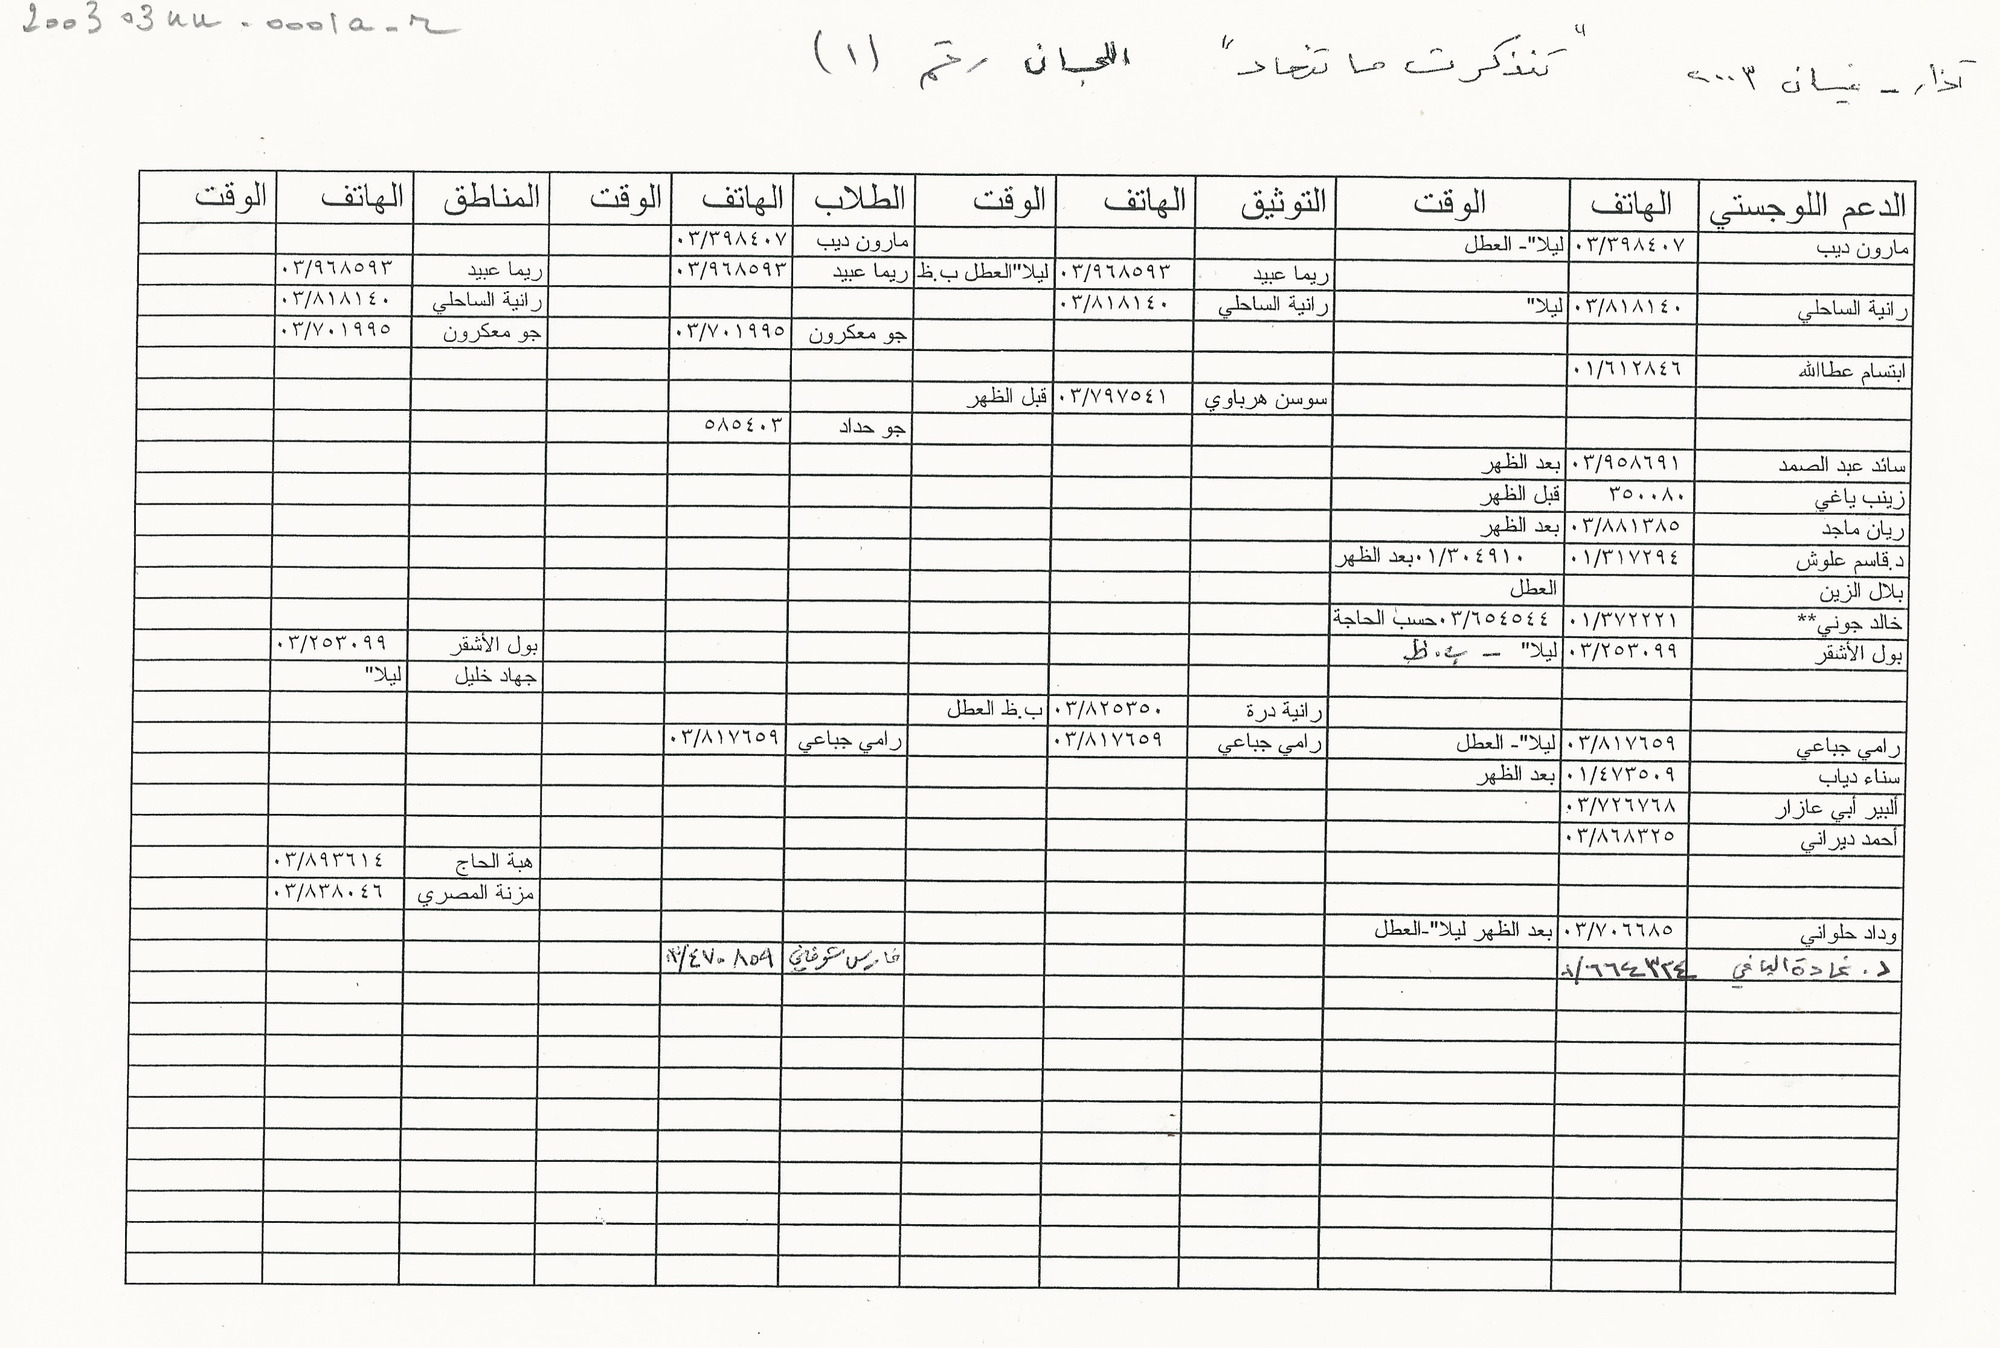 2003 03 uu - 0001a - r
آذار - نيسان ٢٠٠٣ "تنذكرت ما تنعاد" اللجان رقم (١)
الدعم اللوجستي الهاتف الوقت التوثيق الهاتف الوقت الطلاب الهاتف الوقت المناطق الهاتف الوقت
مارون ديب ٠٣/٣٩٨٤٠٧ ليلا"- العطل مارون ديب ٠٣/٣٩٨٤٠٧
ريما عبيد ٠٣/٩٦٨٥٩٣ ليلا"العطل ب.ظ ريما عبيد ٠٣/٩٦٨٥٩٣ ريما عبيد ٠٣/٩٦٨٥٩٣
رانية الساحلي ٠٣/٨١٨١٤٠ ليلا" رانية الساحلي ٠٣/٨١٨١٤٠ رانية الساحلي ٠٣/٨١٨١٤٠
جو معكرون ٠٣/٧٠١٩٩٥ جو معكرون ٠٣/٧٠١٩٩٥
ابتسام عطاالله ٠١/٦١٢٨٤٦
سوسن هرباوي ٠٣/٧٩٧٥٤١ قبل الظهر
جو حداد ٥٨٥٤٠٣
سائد عبد الصمد ٠٣/٩٥٨٦٩١ بعد الظهر
زينب ياغي ٣٥٠٠٨٠ قبل الظهر
ريان ماجد ٠٣/٨٨١٣٨٥ بعد الظهر
د.قاسم علوش ٠١/٣١٧٢٩٤ ٠١/٣٠٤٩١٠ بعد الظهر
بلال الزين العطل
خالد جوني** ٠١/٣٧٢٢٢١ ٠٣/٦٥٤٥٤٤ حسب الحاجة
بول الأشقر ٠٣/٢٥٣٠٩٩ ليلا" - ب.ظ بول الأشقر ٠٣/٢٥٣٠٩٩
جهاد خليل ليلا"
رانية درة ٠٣/٨٢٥٣٥٠ ب.ظ العطل
رامي جباعي ٠٣/٨١٧٦٥٩ ليلا"- العطل رامي جباعي ٠٣/٨١٧٦٥٩ رامي جباعي ٠٣/٨١٧٦٥٩
سناء دياب ٠١/٤٧٣٥٠٩ بعد الظهر
ألبير أبي عازار ٠٣/٧٢٦٧٦٨
أحمد ديراني ٠٣/٨٦٨٣٢٥
هبة الحاج ٠٣/٨٩٣٦١٤
مزنة المصري ٠٣/٨٣٨٠٤٦
وداد حلواني ٠٣/٧٠٦٦٨٥ بعد الظهر ليلا"-العطل
د. غادة اليافي فارس شوفاني ٠٣/٤٧٠٨٥٩